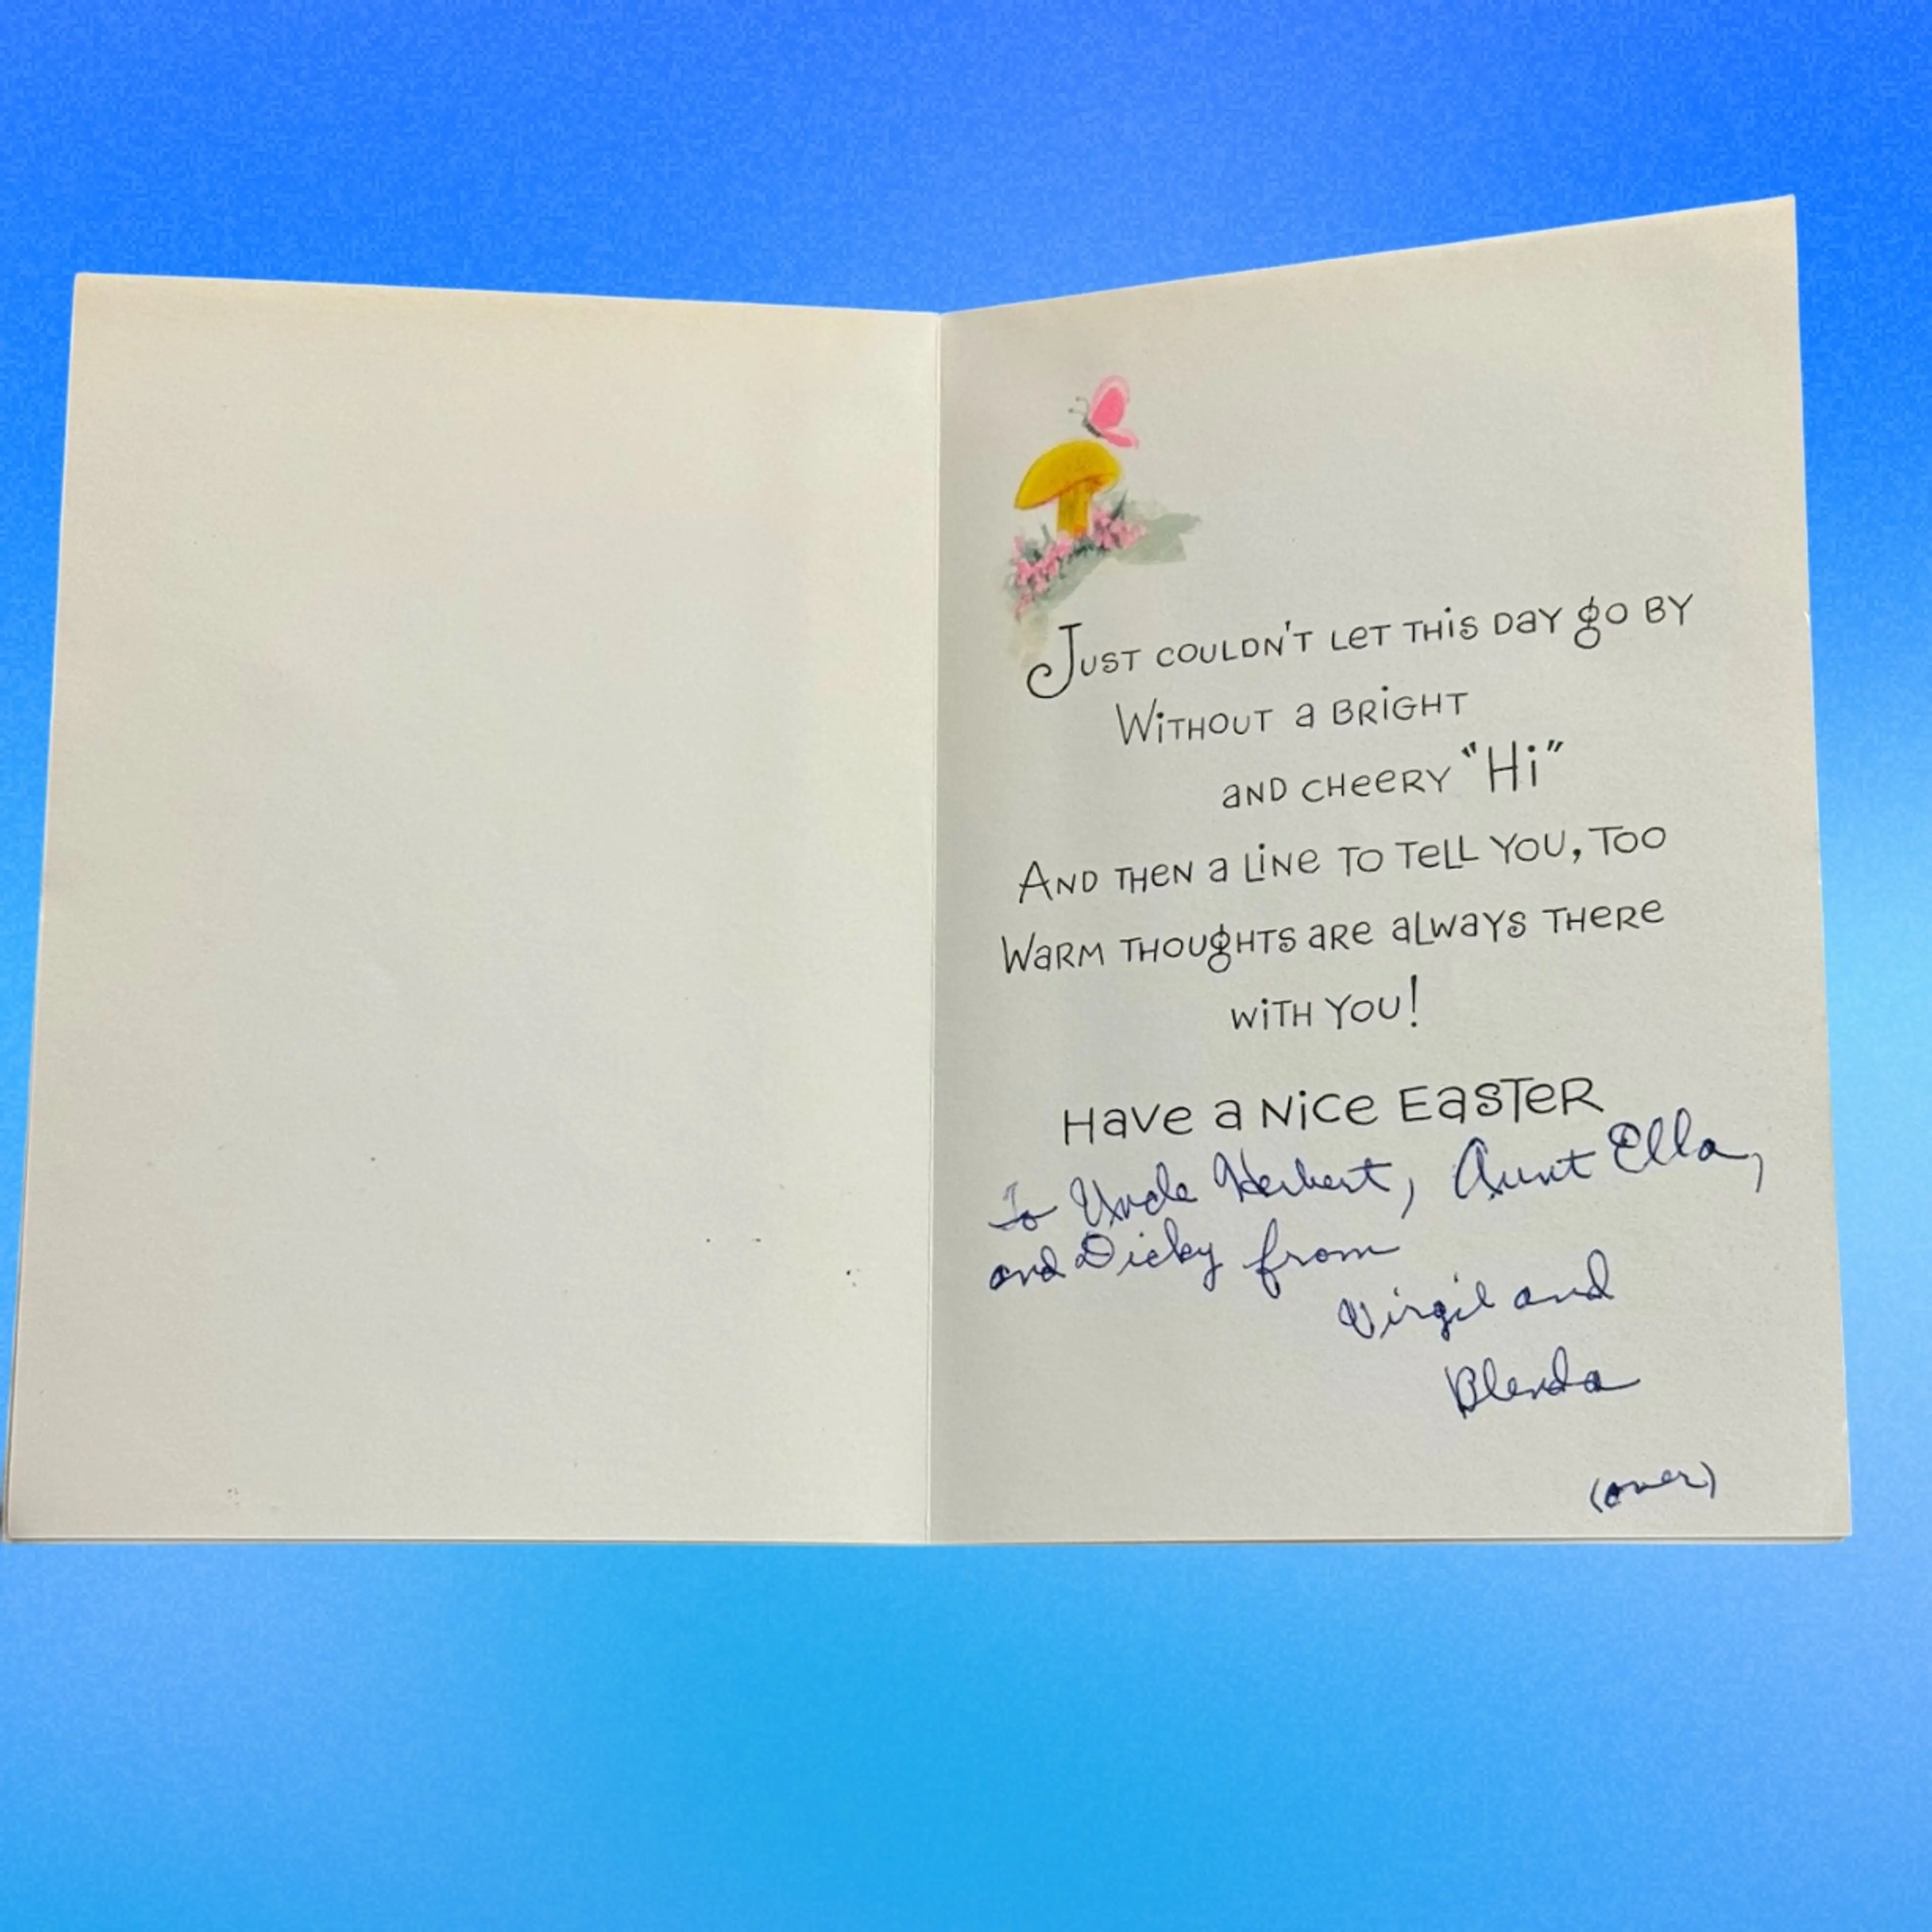 Just couldn't let this day go by
Without a bright
and cheery "Hi"
And then a line to tell you, too
Warm thoughts are always there
with you!
Have a nice Easter
To Uncle Herbert, Aunt Ella,
and Dicky from
Virgil and
Blenda
(over)